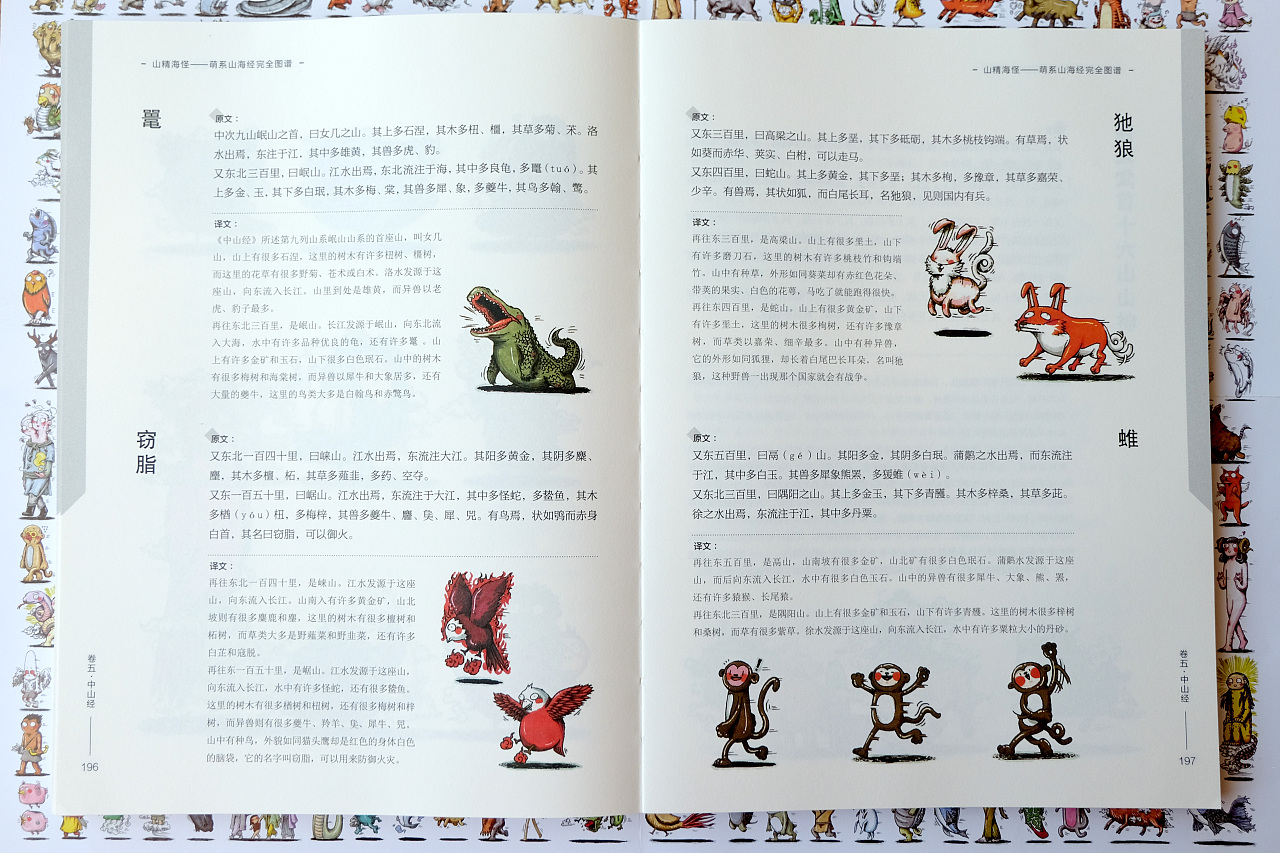 - 山精海怪——萌系山海经完全图谱 -
鼍
原文：
中次九山岷山之首，曰女几之山。其上多石涅，其木多杻、橿，其草多菊、苿。洛
水出焉，东注于江，其中多雄黄，其兽多虎、豹。
又东北三百里，曰岷山。江水出焉，东北流注于海，其中多良龟，多鼍（tuó）。其
上多金、玉，其下多白珉，其木多梅、棠，其兽多犀、象，多夔牛，其鸟多翰、鷩。
译文：
《中山经》所述第九列山系岷山山系的首座山，叫女几
山，山上有很多石涅，这里的树木有许多杻树、橿树，
而这里的花草有很多野菊、苍术或白术。洛水发源于这
座山，向东流入长江。山里到处是雄黄，而异兽以老
虎、豹子最多。
再往东北三百里，是岷山。长江发源于岷山，向东北流
入大海，水中有许多品种优良的龟，还有许多鼍 。山
上有许多金矿和玉石，山下很多白色珉石。山中的树木
有很多梅树和海棠树，而异兽以犀牛和大象居多，还有
大量的夔牛，这里的鸟类大多是白翰鸟和赤鷩鸟。
窃脂
原文：
又东北一百四十里，曰崃山。江水出焉，东流注大江。其阳多黄金，其阴多麋、
麈，其木多檀、柘，其草多薤韭，多药、空夺。
又东一百五十里，曰崌山。江水出焉，东流注于大江，其中多怪蛇，多鰲鱼，其木
多楢（yóu）杻，多梅梓，其兽多夔牛、麢、㚟、犀、兕。有鸟焉，状如鸮而赤身
白首，其名曰窃脂，可以御火。
译文：
再往东北一百四十里，是崃山。江水发源于这座
山，向东流入长江。山南入有许多黄金矿，山北
坡则有很多麋鹿和麈，这里的树木有很多檀树和
柘树，而草类大多是野薤菜和野韭菜，还有许多
白芷和寇脱。
再往东一百五十里，是崌山。江水发源于这座山，
向东流入长江，水中有许多怪蛇，还有很多鰲鱼。
这里的树木有很多楢树和杻树，还有很多梅树和梓
树，而异兽则有很多夔牛、羚羊、㚟、犀牛、兕。
山中有种鸟，外貌如同猫头鹰却是红色的身体白色
的脑袋，它的名字叫窃脂，可以用来防御火灾。
卷五·中山经
196
- 山精海怪——萌系山海经完全图谱 -
㹢狼
原文：
又东三百里，曰高梁之山。其上多垩，其下多砥砺，其木多桃枝钩端。有草焉，状
如葵而赤华、荚实、白柎，可以走马。
又东四百里，曰蛇山。其上多黄金，其下多垩；其木多栒，多豫章，其草多嘉荣、
少辛。有兽焉，其状如狐，而白尾长耳，名㹢狼，见则国内有兵。
译文：
再往东三百里，是高梁山。山上有很多垩土，山下
有许多磨刀石，这里的树木有许多桃枝竹和钩端
竹。山中有种草，外形如同葵菜却有赤红色花朵、
带荚的果实、白色的花萼，马吃了就能跑得很快。
再往东四百里，是蛇山。山上有很多黄金矿，山下
有许多垩土，这里的树木很多栒树，还有许多豫章
树，而草类以嘉荣、细辛最多。山中有种异兽，
它的外形如同狐狸，却长着白尾巴长耳朵，名叫㹢
狼，这种野兽一出现那个国家就会有战争。
蜼
原文：
又东五百里，曰鬲（gé）山。其阳多金，其阴多白珉。蒲鹳之水出焉，而东流注
于江，其中多白玉。其兽多犀象熊罴，多猨蜼（wèi）。
又东北三百里，曰隅阳之山。其上多金玉，其下多青雘。其木多梓桑，其草多茈。
徐之水出焉，东流注于江，其中多丹粟。
译文：
再往东五百里，是鬲山，山南坡有很多金矿，山北矿有很多白色珉石。蒲鹳水发源于这座
山，而后向东流入长江，水中有很多白色玉石。山中的异兽有很多犀牛、大象、熊、罴，
还有许多猿猴、长尾猿。
再往东北三百里，是隅阳山。山上有很多金矿和玉石，山下有许多青雘。这里的树木很多梓树
和桑树，而草有很多紫草。徐水发源于这座山，向东流入长江，水中有许多粟粒大小的丹砂。
卷五·中山经
197